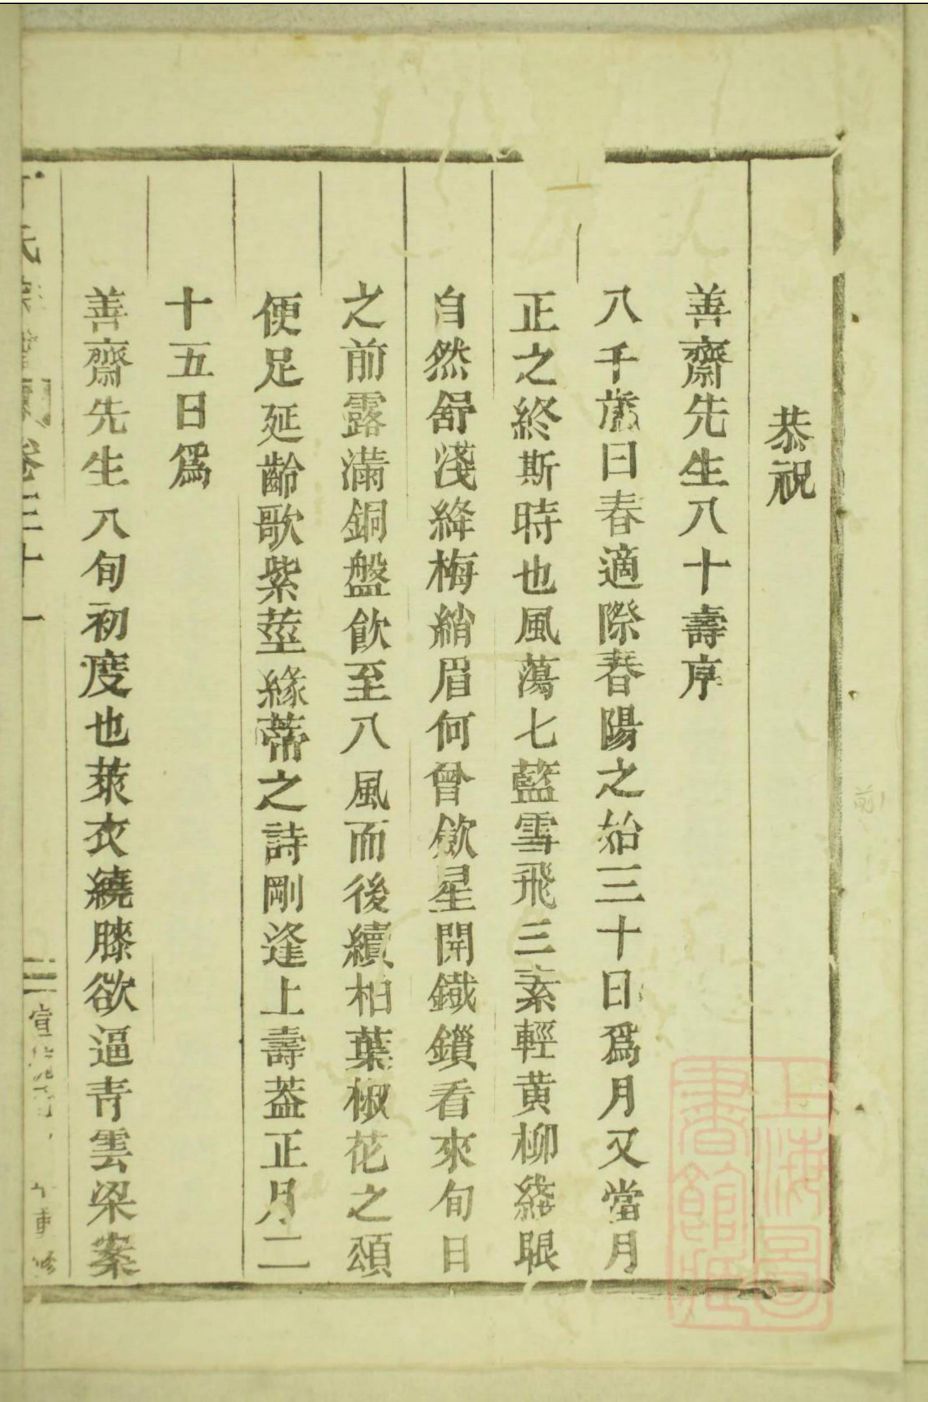 恭祝
善齋先生八十壽序
八千歲曰春適際春陽之始三十日爲月又當月
正之終斯時也風蕩七藍雪飛三素輕黄柳綫眼
自然舒淺絳梅綃眉何曾斂星開鐵鎖看來旬日
之前露滿銅盤飲至八風而後續柏葉椒花之頌
便足延齡歌紫莖緣蒂之詩剛逢上壽葢正月二
十五日爲
善齋先生八旬初度也萊衣繞膝欲逼青雲梁案
氏 卷三十一
二
宣 重修
上海圖書館藏